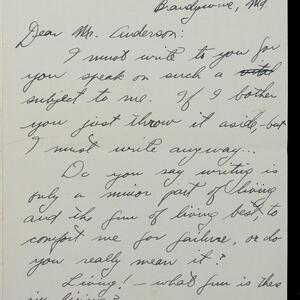 Brandywine, Md.
Dear Mr. Anderson:
I must write to you for
you speak on such a vital
subject to me. If I bother
you just throw it aside, but
I must write anyway...
Do you say writing is
only a minor part of living
and the fun of living best, to
comfort me for failure, or do
you really mean it?
Living! - what fun is there
in living?